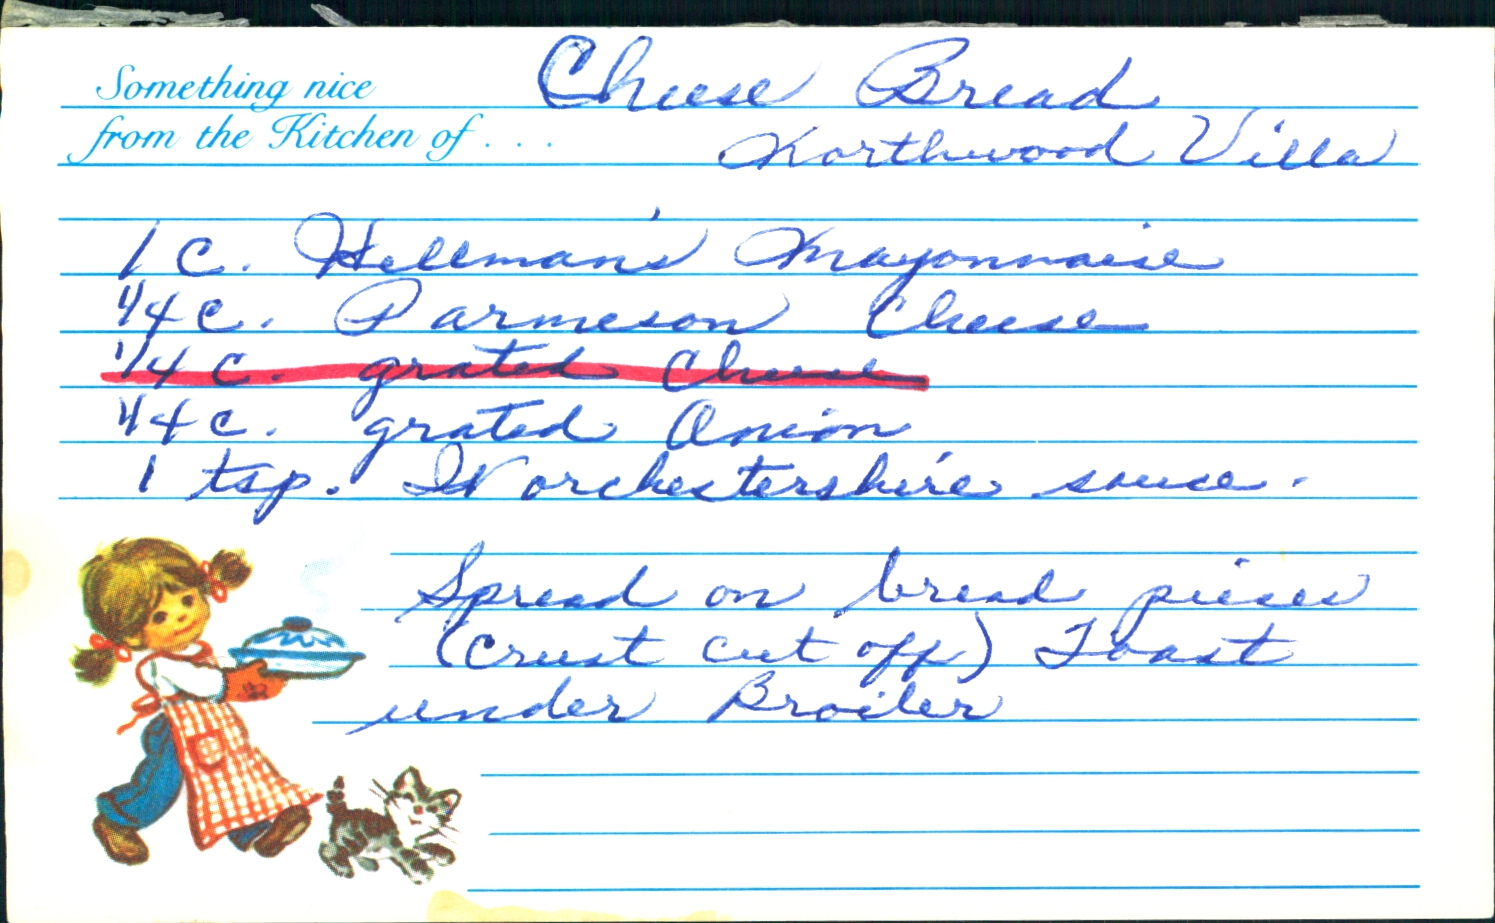 Something nice
Cheese Bread
from the Kitchen of . . .
Northwood Villa
1 C. Hellman's Mayonnaise
1/4 c. Parmeson Cheese
1/4 C. grated Cheese
1/4 c. grated Onion
1 tsp. Worchestershire sauce.
Spread on bread pieces
(crust cut off) Toast
under Broiler